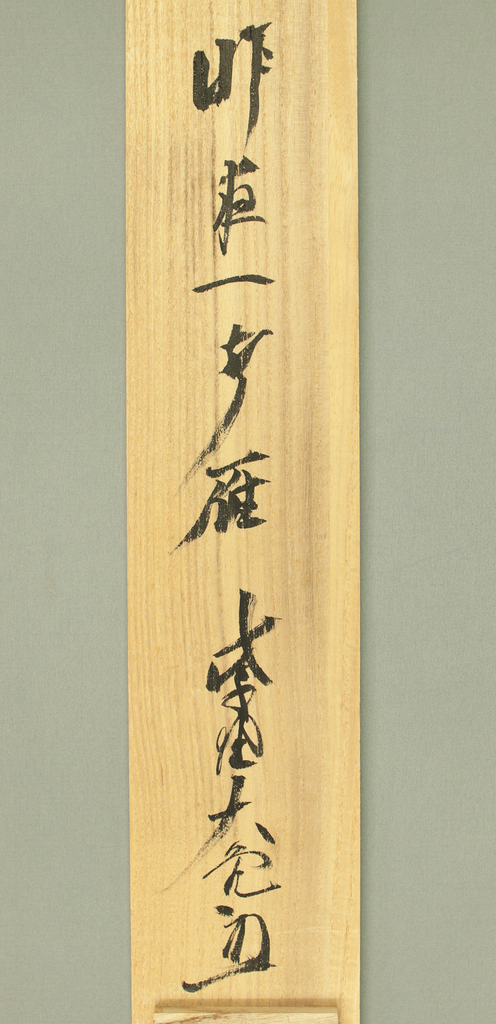 昨夜一声雁 紫野大亀